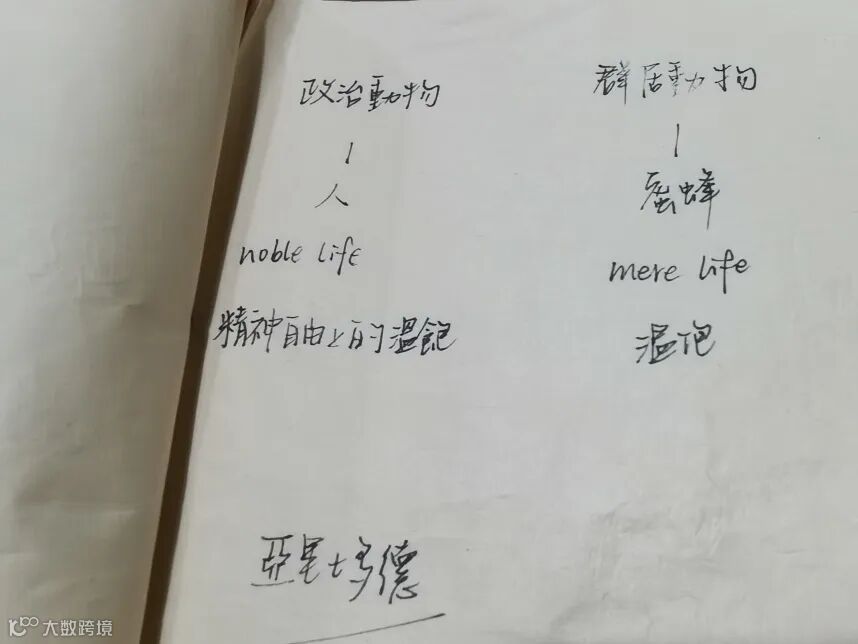 政治動物 群居動物
人 蜜蜂
noble life mere life
精神自由上的温飽 温饱
亞里士多德
大数跨境